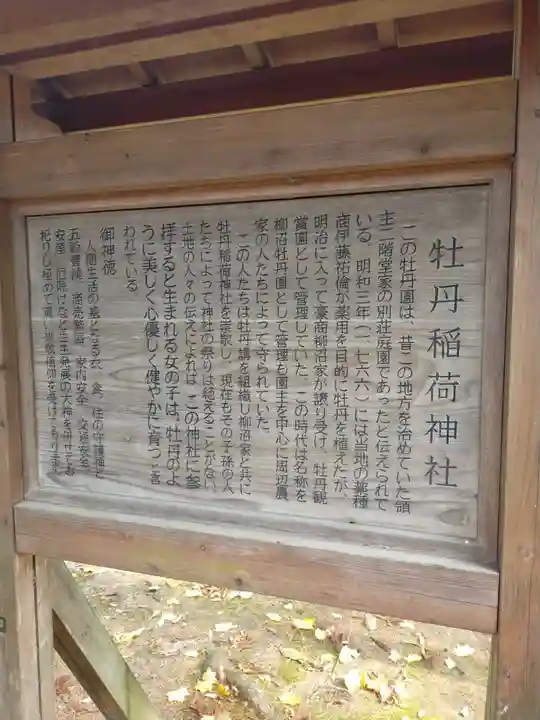 牡丹稲荷神社
この牡丹園は、昔この地方を治めていた領
主二階堂家の別荘庭園であったと伝えられて
いる。明和三年(一七六六)には当地の薬種
商伊藤祐倫が薬用を目的に牡丹を植えたが、
明治に入って豪商柳沼家が譲り受け、牡丹観
賞園として管理していた。この時代は名称を
柳沼牡丹園として管理も園主を中心に周辺農
家の人たちによって守られていた。
この人たちは牡丹講を組織し柳沼家と共に
牡丹稲荷神社を崇敬し、現在もその子孫の人
たちによって神社の祭りは絶えることがない。
土地の人々の伝えによれば、この神社に参
拝すると生まれる女の子は、牡丹のよ
うに美しく心優しく健やかに育つと言
われている。
御神徳
人間生活の基となる衣、食、住の守護神と
五穀豊穣 商売繁盛 家内安全 交通安全
安産 厄除けなど生々発展の大神を併せてお
祀りし極めて篤い崇敬信仰を受けております。